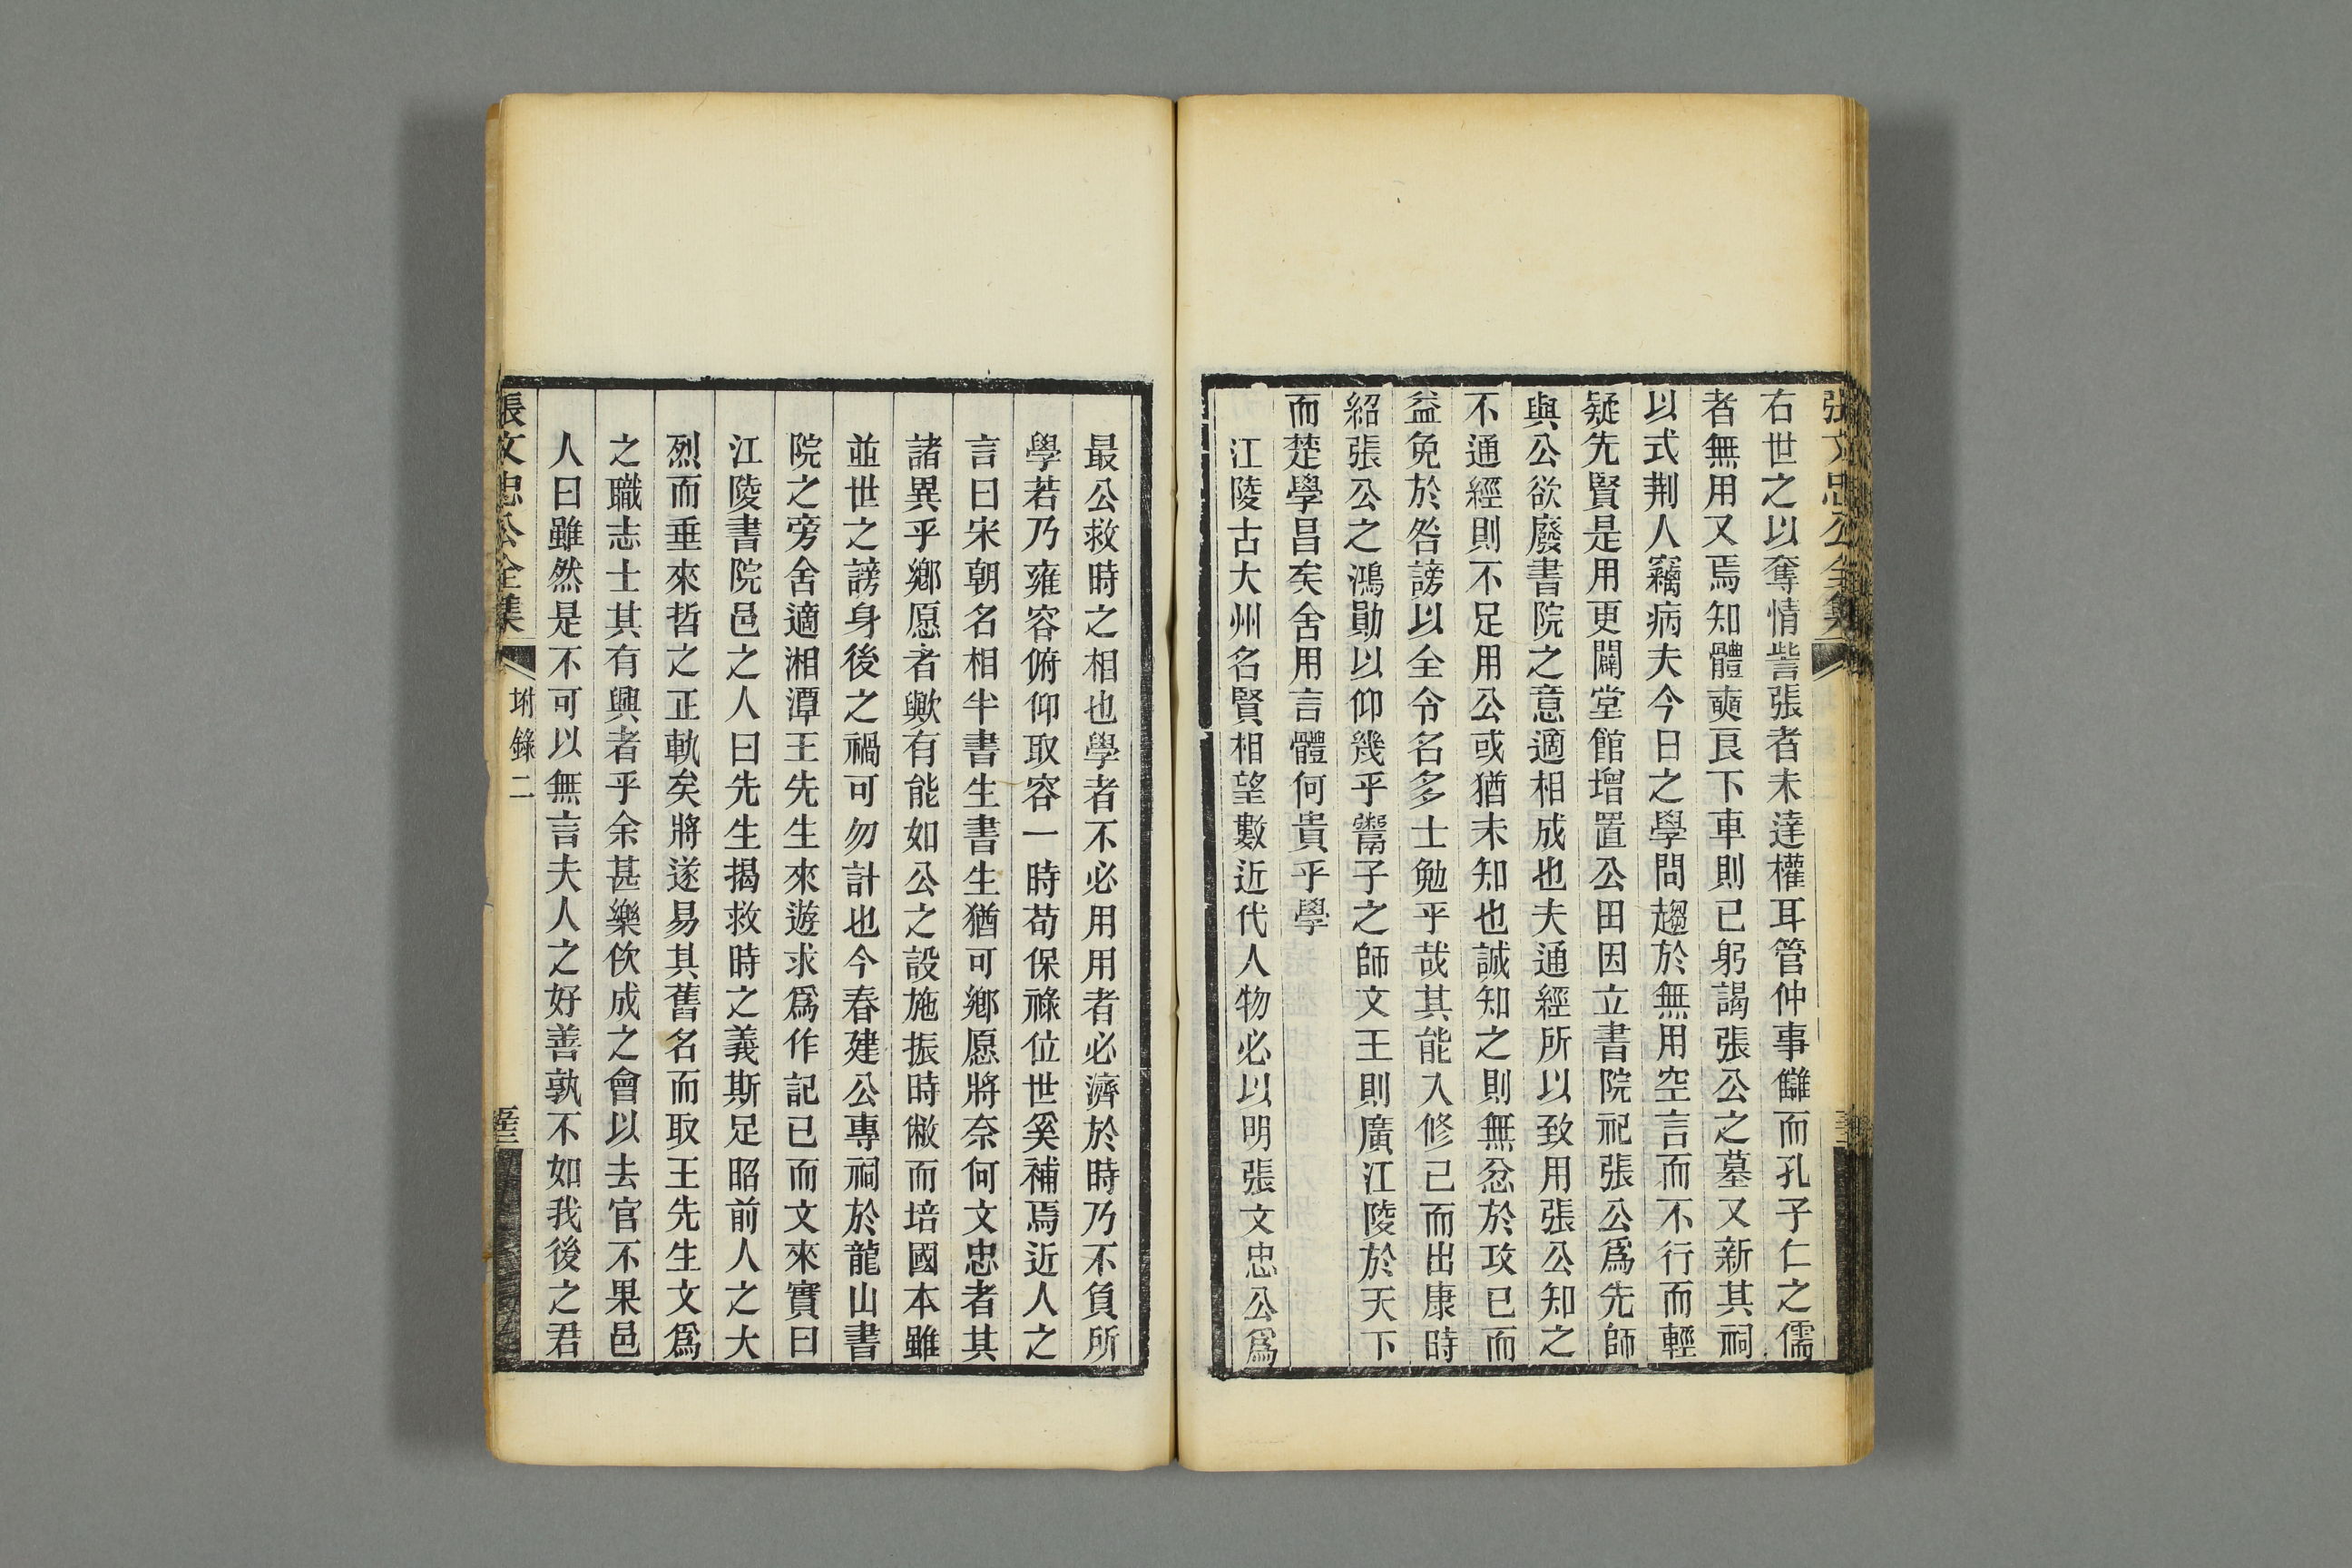 張文忠公全集
右世之以奪情訾張者未達權耳管仲事讎而孔子仁之儒
者無用又焉知體輭良下車則已躬謁張公之墓又新其祠
以式荆人竊病夫今日之學問趨於無用空言而不行而輕
疑先賢是用更闢堂館增置公田因立書院祀張公爲先師
與公欲廢書院之意適相成也夫通經所以致用張公知之
不通經則不足用公或猶未知也誠知之則無忿於攻已而
益免於咎謗以全令名多士勉乎哉其能入修己而出康時
紹張公之鴻勛以仰幾乎鬻子之師文王則廣江陵於天下
而楚學昌矣舍用言體何貴乎學
江陵古大州名賢相望數近代人物必以明張文忠公爲
最公救時之相也學者不必用用者必濟於時乃不負所
學若乃雍容俯仰取容一時苟保祿位世奚補焉近人之
言曰宋朝名相半書生書生猶可鄉愿將奈何文忠者其
諸異乎鄉愿者歟有能如公之設施振時敝而培國本雖
並世之謗身後之禍可勿計也今春建公專祠於龍山書
院之旁舍適湘潭王先生來遊求爲作記已而文來實曰
江陵書院邑之人曰先生揭救時之義斯足昭前人之大
烈而垂來哲之正軌矣將遂易其舊名而取王先生文爲
之職志士其有興者乎余甚樂佽成之會以去官不果邑
人曰雖然是不可以無言夫人之好善孰不如我後之君
張文忠公全集
坿錄二